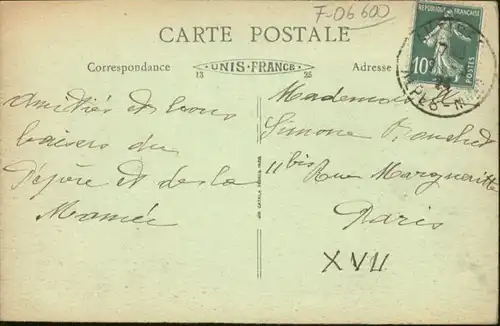 F-06600
CARTE POSTALE
REPUBLIQUE FRANÇAISE
10c
POSTES
Correspondance
13
UNIS-FRANCE
25
Adresse
Amitiés et bons
baisers du
Pépère et de la
Mamée
Mademoiselle
Simone
11 bis Rue Margueritte
Paris
XVII